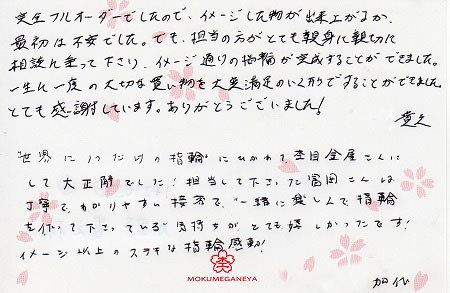 完全フルオーダーでしたので、イメージした物が出来上がるか、
最初は不安でした。でも、担当の方がとても親身に親切に
相談に乗って下さり、イメージ通りの指輪が完成することができました。
一生に一度の大切な買い物を大変満足のいく形ですることができました。
とても感謝しています。ありがとうございました!
"世界に1つだけの指輪"にひかれて、杢目金屋さんに
して大正解でした!担当して下さった富岡さんは
丁寧で、わかりやすい接客で、"一緒に楽しんで指輪
を作って下さっている"気持ちが、とても嬉しかったです!
イメージ以上のステキな指輪感動!
MOKUMEGANEYA